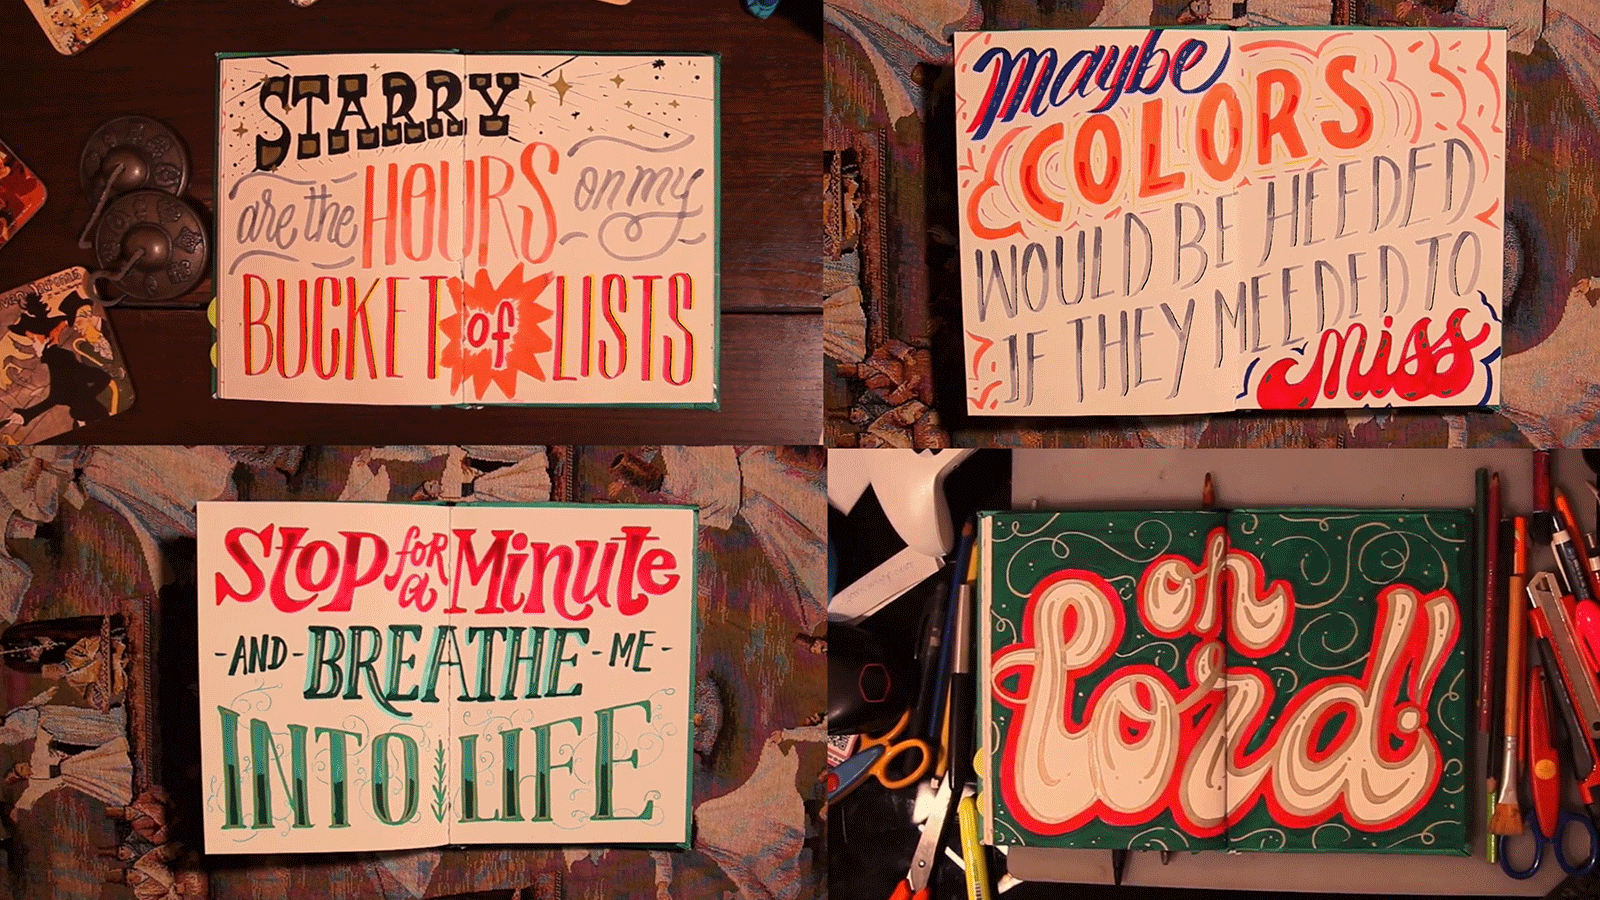 STARRY
are the HOURS on my
BUCKET of LISTS
Maybe
COLORS
WOULD BE HEEDED
IF THEY MEEDED TO
miss
Stop for a Minute
- AND - BREATHE - ME -
INTO LIFE
oh
Lord!